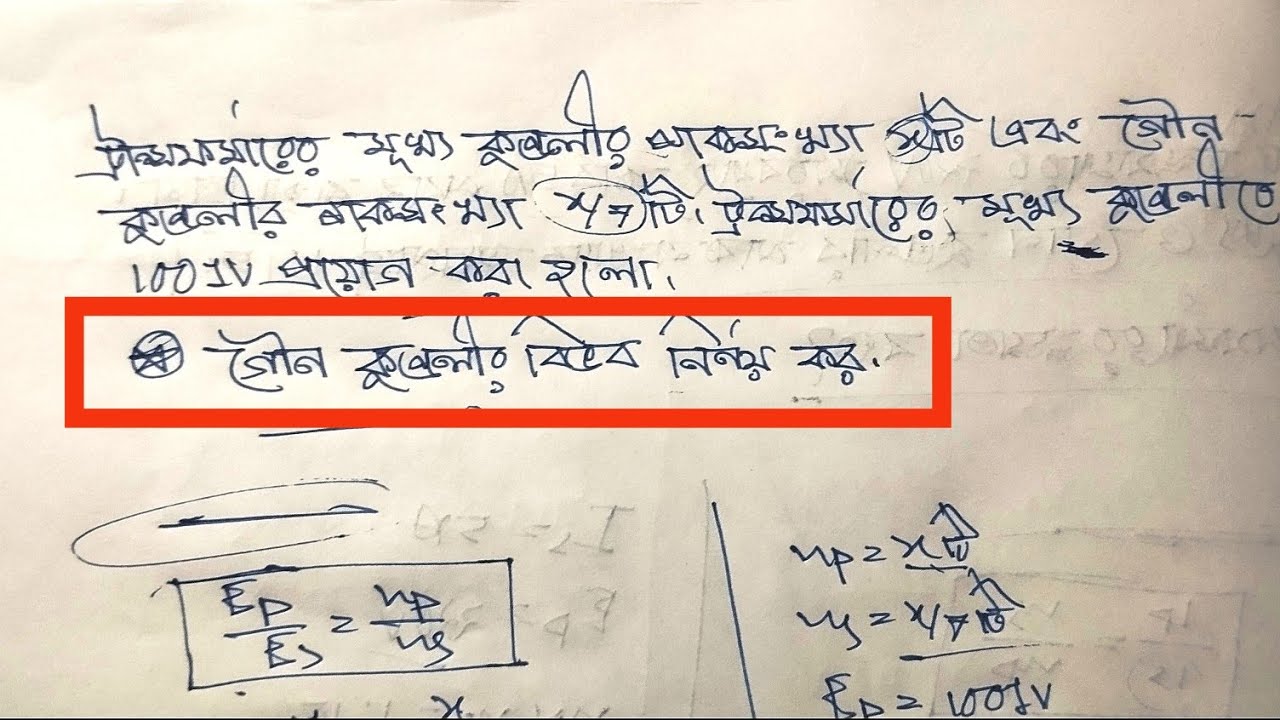 ট্রান্সফর্মারের মূখ্য কুন্ডলীর পাকসংখ্যা xটি এবং গৌন
কুন্ডলীর পাকসংখ্যা x/7 টি। ট্রান্সফর্মারের মূখ্য কুন্ডলীতে
1001V প্রয়োগ করা হলো।
গৌন কুন্ডলীর বিভব নির্ণয় কর।
Ep/Es = np/ns
np = xটি
ns = x/7 টি
Ep = 1001V
x